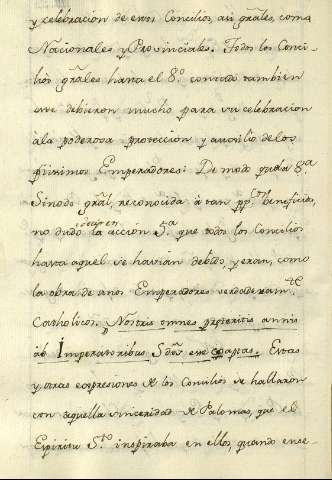 y celebracion de estos Concilios, asi grãles, como
Nacionales y Provinciales. Todos los Conci-
lios grãles hasta el 8.º convida tambien
se debieron mucho para su celebracion
à la poderosa proteccion y auxilio de los
piissimos Emperadores: De modo q. la 8.ª
Sinodo grãl, reconocida à tan beneficios,
no dudo en la accion 5.ª que todos los Concilios
hasta aquel se havian debido, y eran, como
la obra de unos Emperadores verdaderam.te
Catholicos. Nostris omnes preteritis annis
ab Imperatoribus S.dos esse coaptas. Estas
y otras expresiones de los Concilios se hallaron
con aquella sinceridad de Palomas, que el
Espiritu S.to inspiraba en ellos, quando ense-